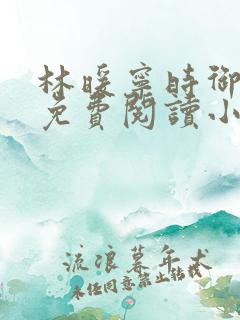 林暖寧時御
免費閱讀小
流浪暮年犬
未任同意禁止转载